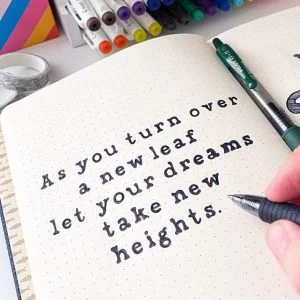 As you turn over
a new leaf
let your dreams
take new
heights.